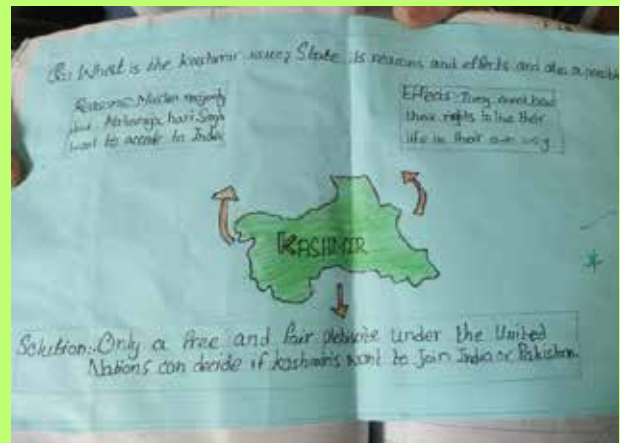 Q: What is the Kashmir issue? State its reasons and effects and also a possible
Reasons: Muslim majority
but Maharaja hari Singh
want to accede to India
Effects: They
their rights to live their
life in their own way
KASHMIR
Solution:- Only a free and fair plebiscite under the United
Nations can decide if kashmiris want to Join India or Pakistan.